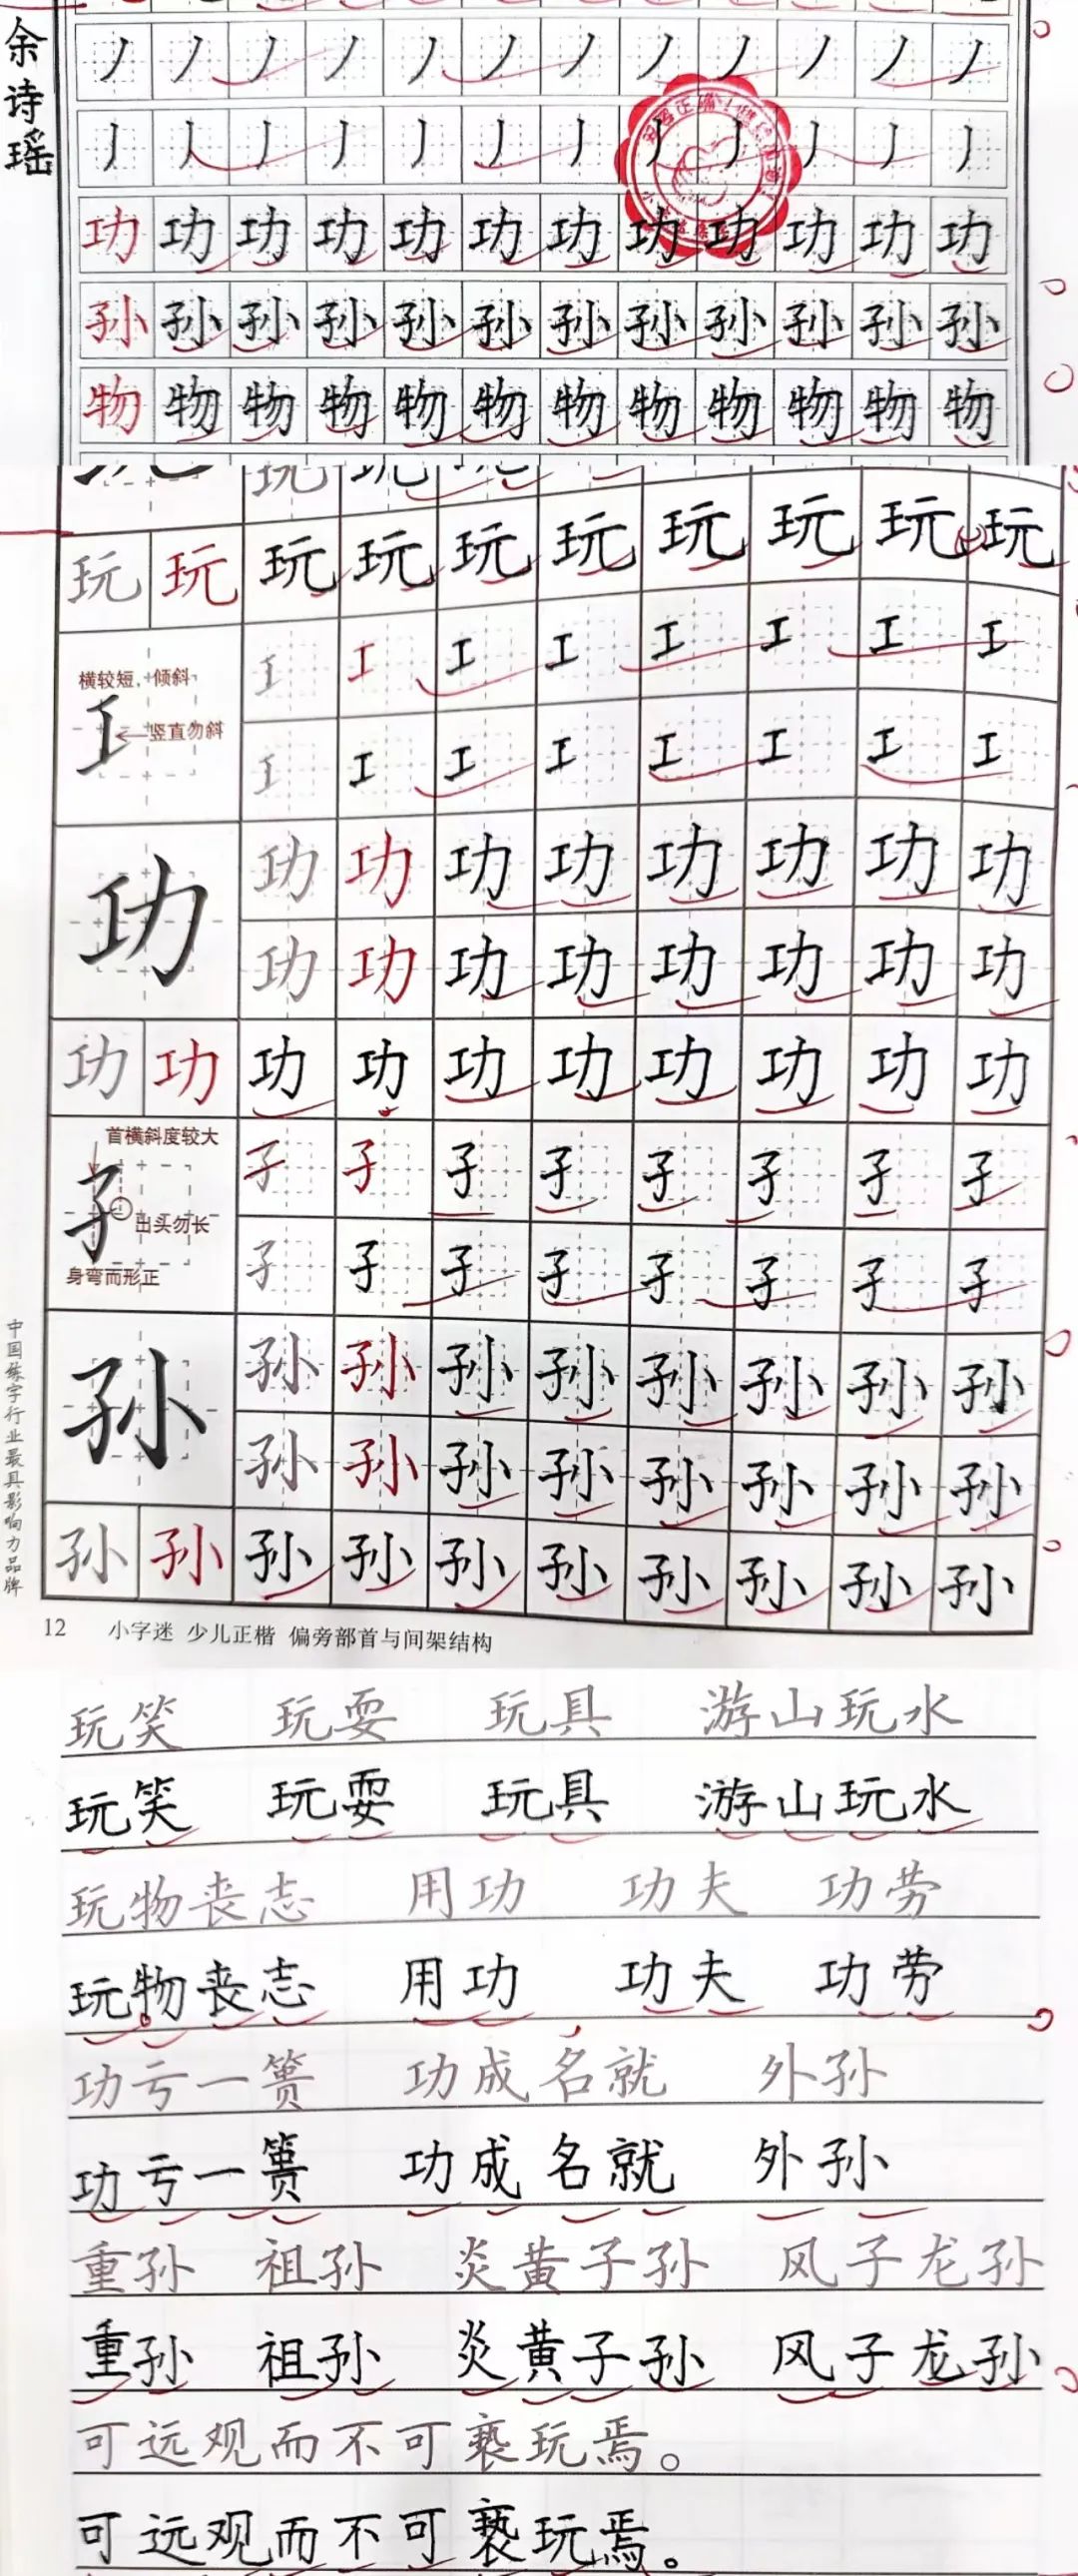 余诗瑶
功 功 功 功 功 功 功 功 功 功 功 功
孙 孙 孙 孙 孙 孙 孙 孙 孙 孙 孙 孙
物 物 物 物 物 物 物 物 物 物 物 物
玩 玩
玩 玩 玩 玩 玩 玩 玩 玩 玩 玩
横较短，倾斜
竖直勿斜
工 工 工 工 工 工 工 工 工
工 工 工 工 工 工 工 工
功 功 功 功 功 功 功 功 功
功 功 功 功 功 功 功 功
功 功 功 功 功 功 功 功 功 功
首横斜度较大
出头勿长
身弯而形正
孑 孑 孑 孑 孑 孑 孑 孑 孑
孑 孑 孑 孑 孑 孑 孑 孑
孙 孙 孙 孙 孙 孙 孙 孙 孙
孙 孙 孙 孙 孙 孙 孙 孙
孙 孙 孙 孙 孙 孙 孙 孙 孙 孙
中国练字行业最具影响力品牌
12 小字迷 少儿正楷 偏旁部首与间架结构
玩笑 玩耍 玩具 游山玩水
玩笑 玩耍 玩具 游山玩水
玩物丧志 用功 功夫 功劳
玩物丧志 用功 功夫 功劳
功亏一篑 功成名就 外孙
功亏一篑 功成名就 外孙
重孙 祖孙 炎黄子孙 风子龙孙
重孙 祖孙 炎黄子孙 风子龙孙
可远观而不可亵玩焉。
可远观而不可亵玩焉。